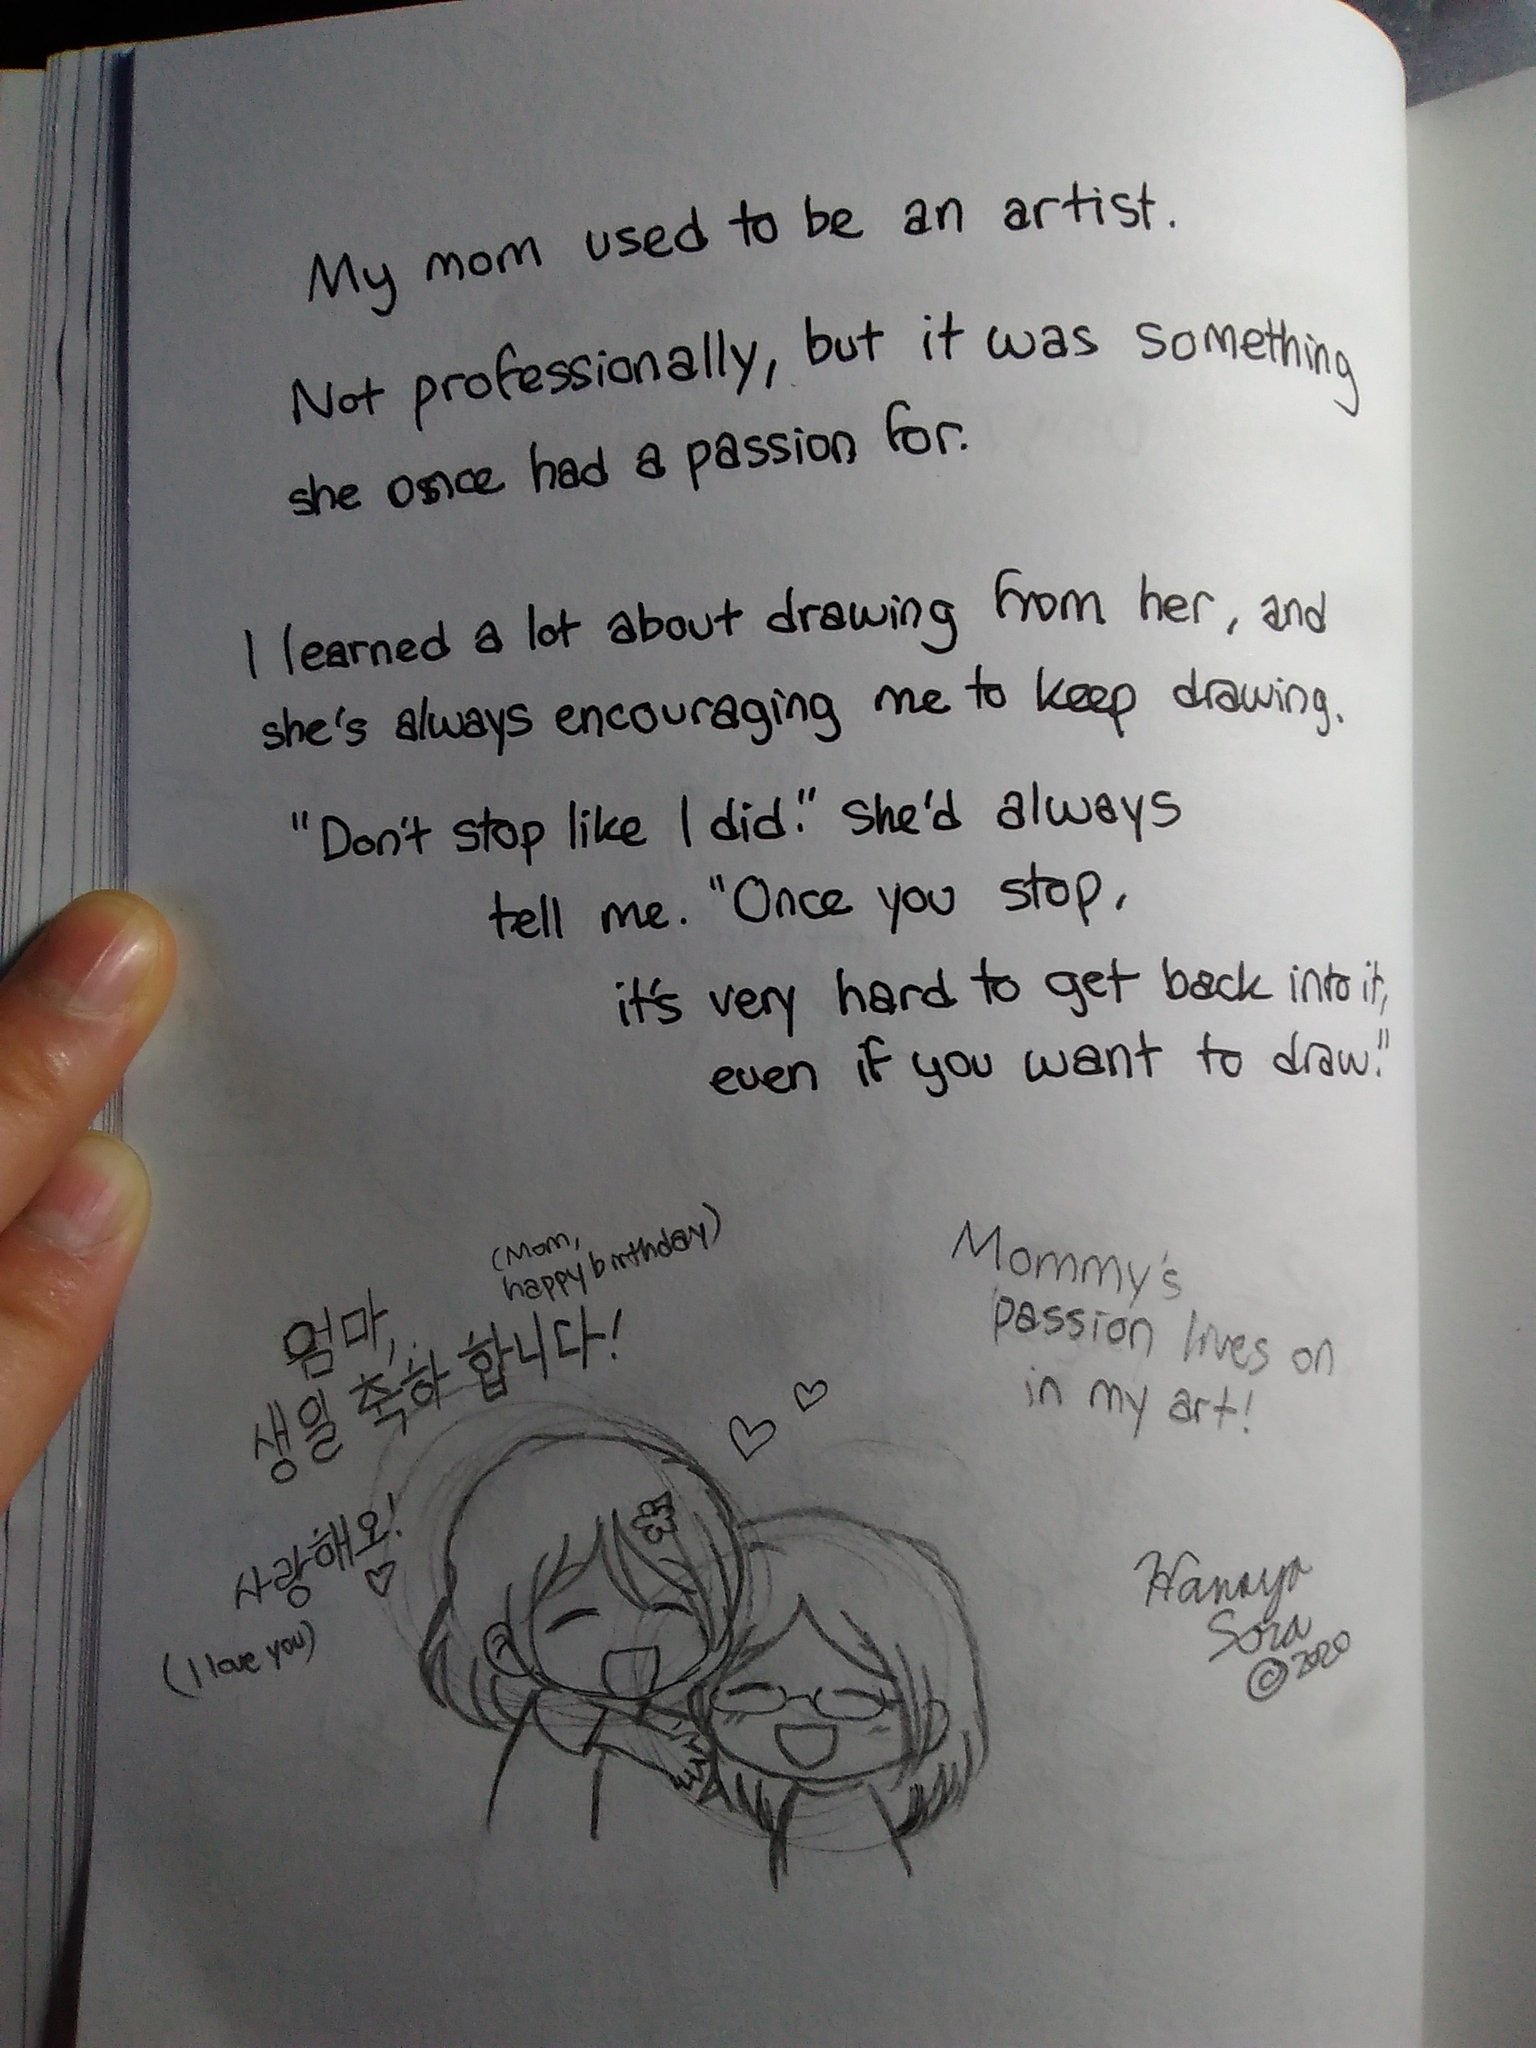 My mom used to be an artist.
Not professionally, but it was something
she once had a passion for.
I learned a lot about drawing from her, and
she's always encouraging me to keep drawing.
"Don't stop like I did." She'd always
tell me. "Once you stop,
it's very hard to get back into it,
even if you want to draw."
(Mom,
happy birthday)
엄마,
생일 축하 합니다!
사랑해요!
(I love you)
Mommy's
passion lives on
in my art!
Hanaya
Sora
©2020